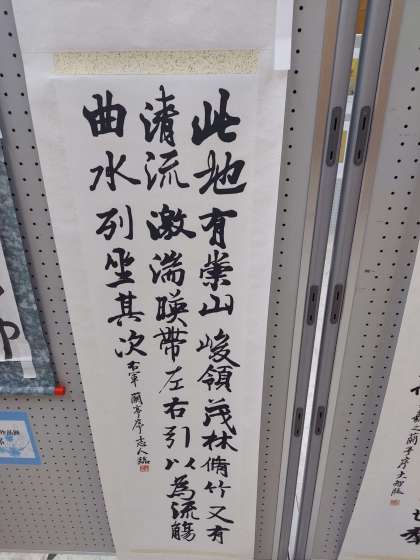 此地有崇山峻領茂林脩竹又有
清流激湍暎帶左右引以為流觴
曲水列坐其次
右軍蘭亭序志人臨